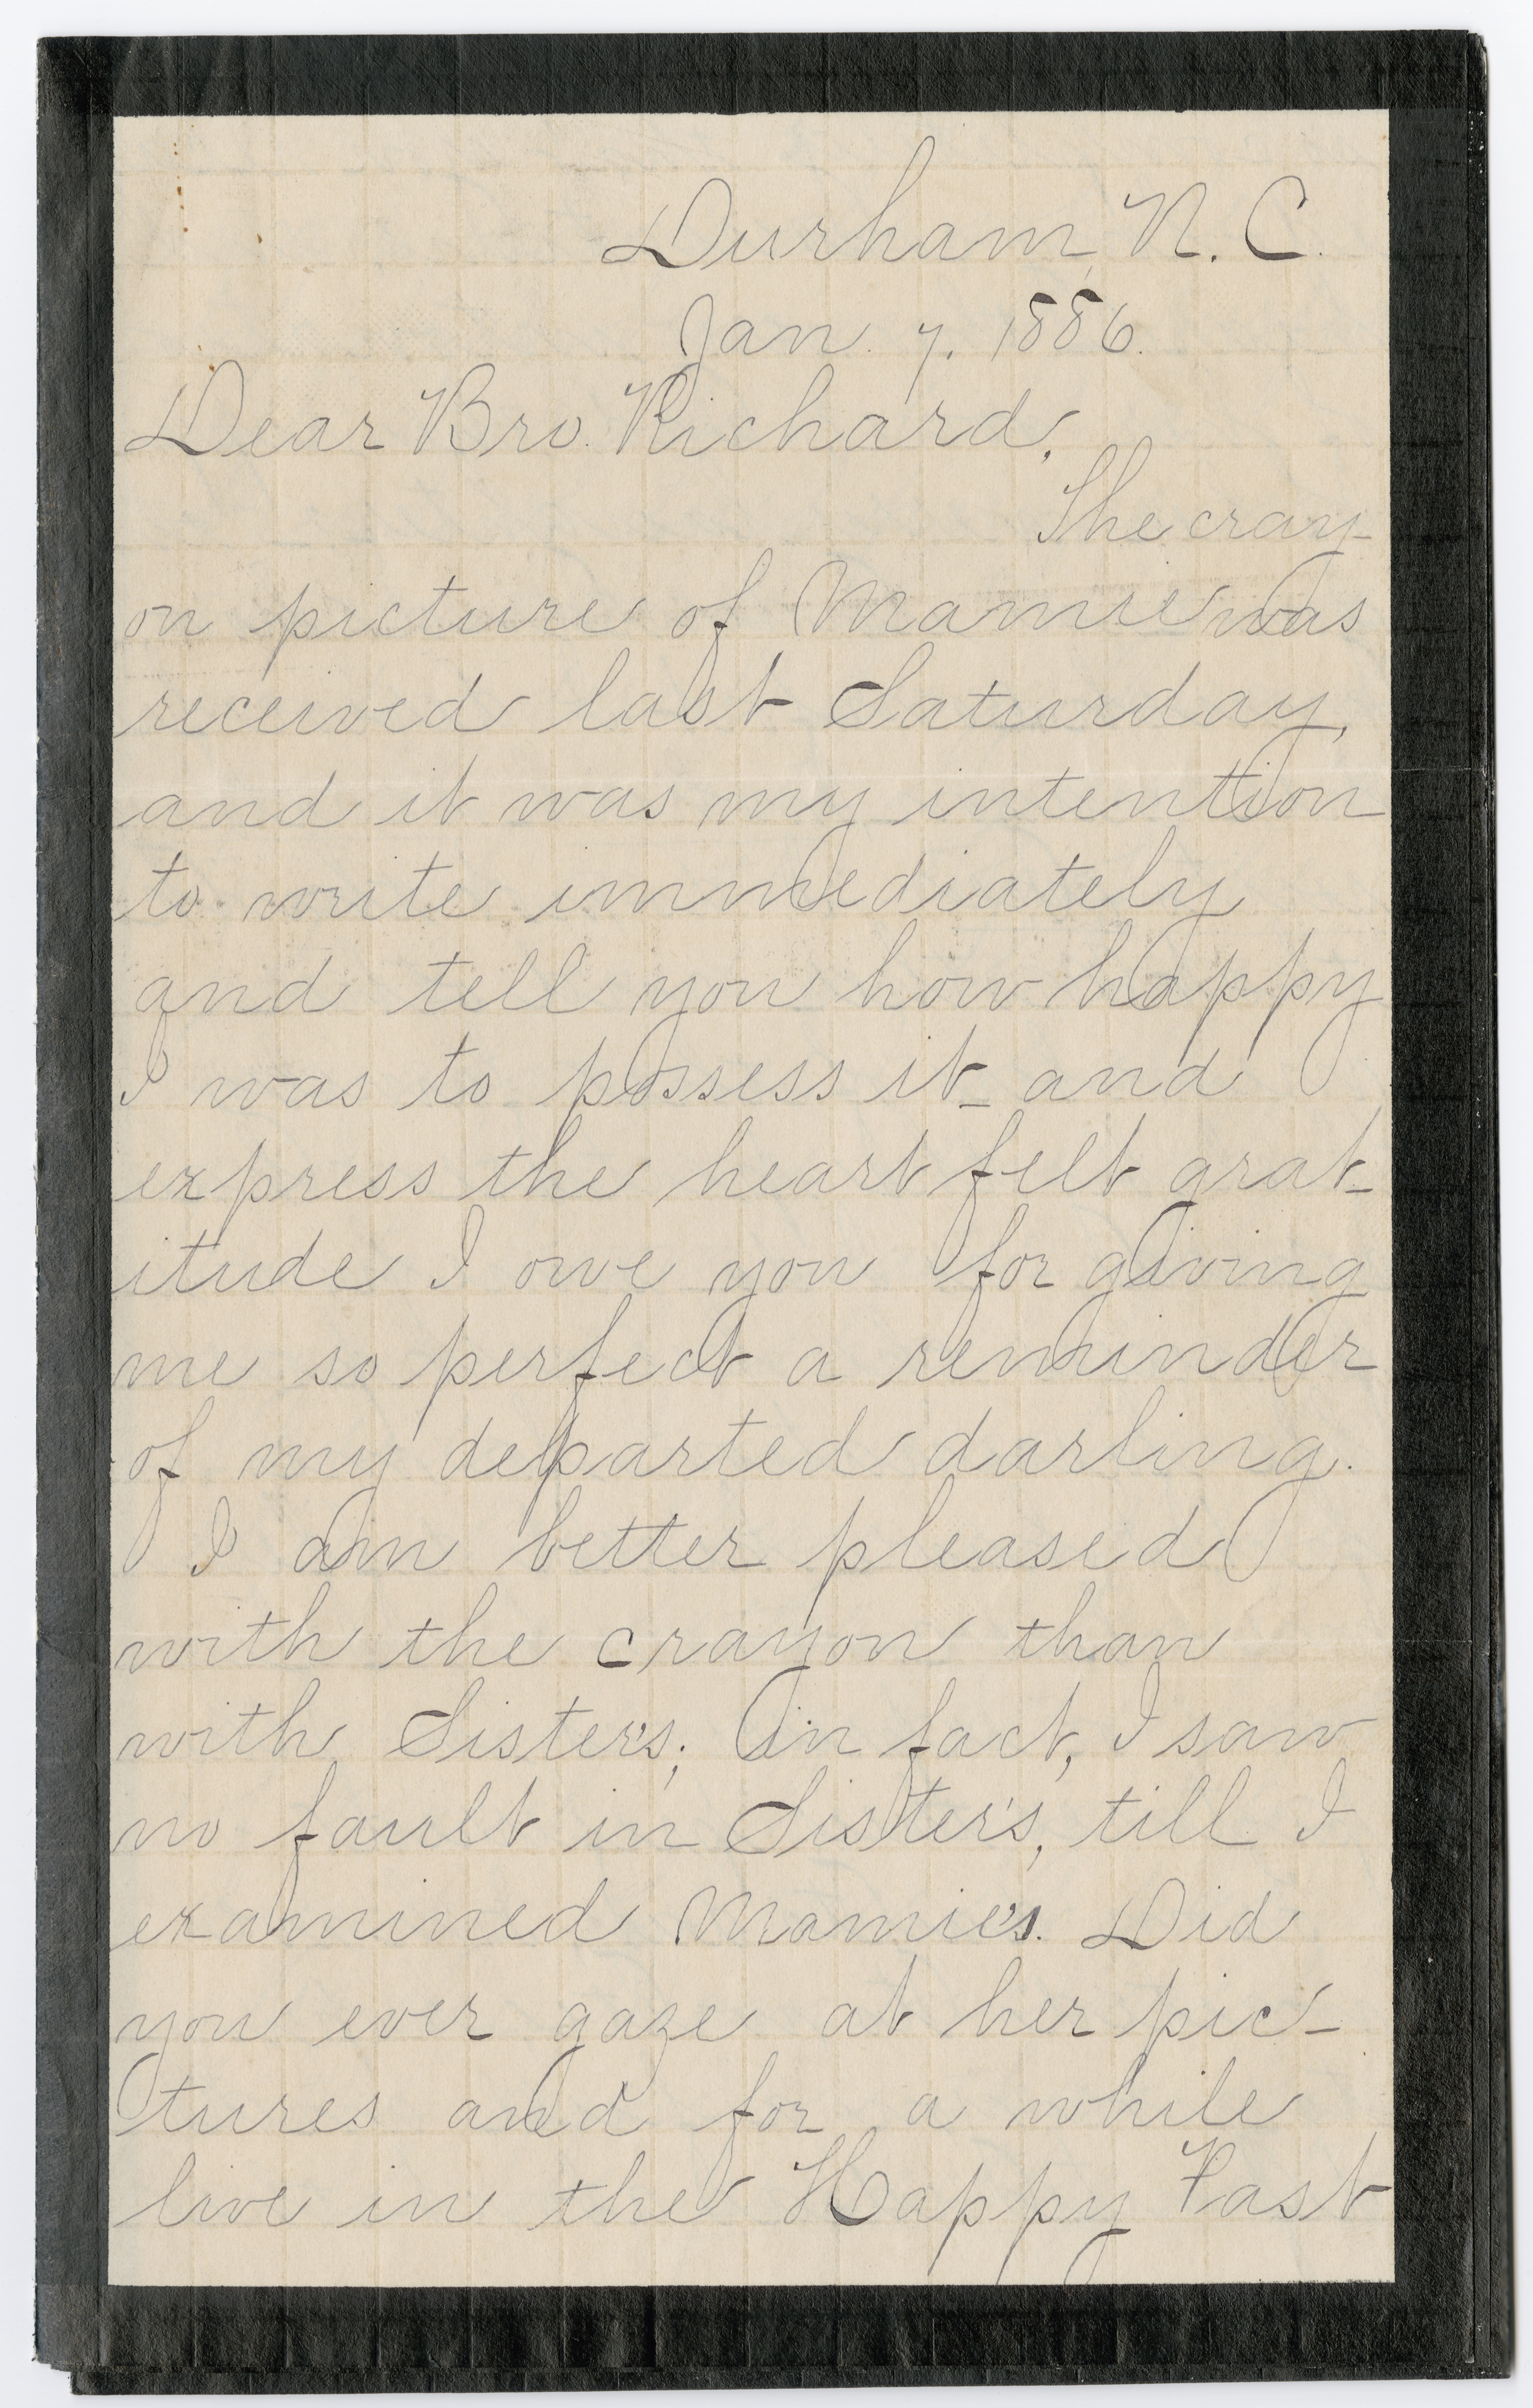 Durham, N. C.
Jan. 7. 1886.
Dear Bro. Richard,
The cray-
on picture of Mamie was
received last Saturday,
and it was my intention
to write immediately
and tell you how happy
I was to possess it - and
express the heart felt grat-
itude I owe you for giving
me so perfect a reminder
of my departed darling.
I am better pleased
with the crayon than
with Sister's; in fact, I saw
no fault in Sister's, till I
examined Mamie's. Did
you ever gaze at her pic-
tures and for a while
live in the Happy Past